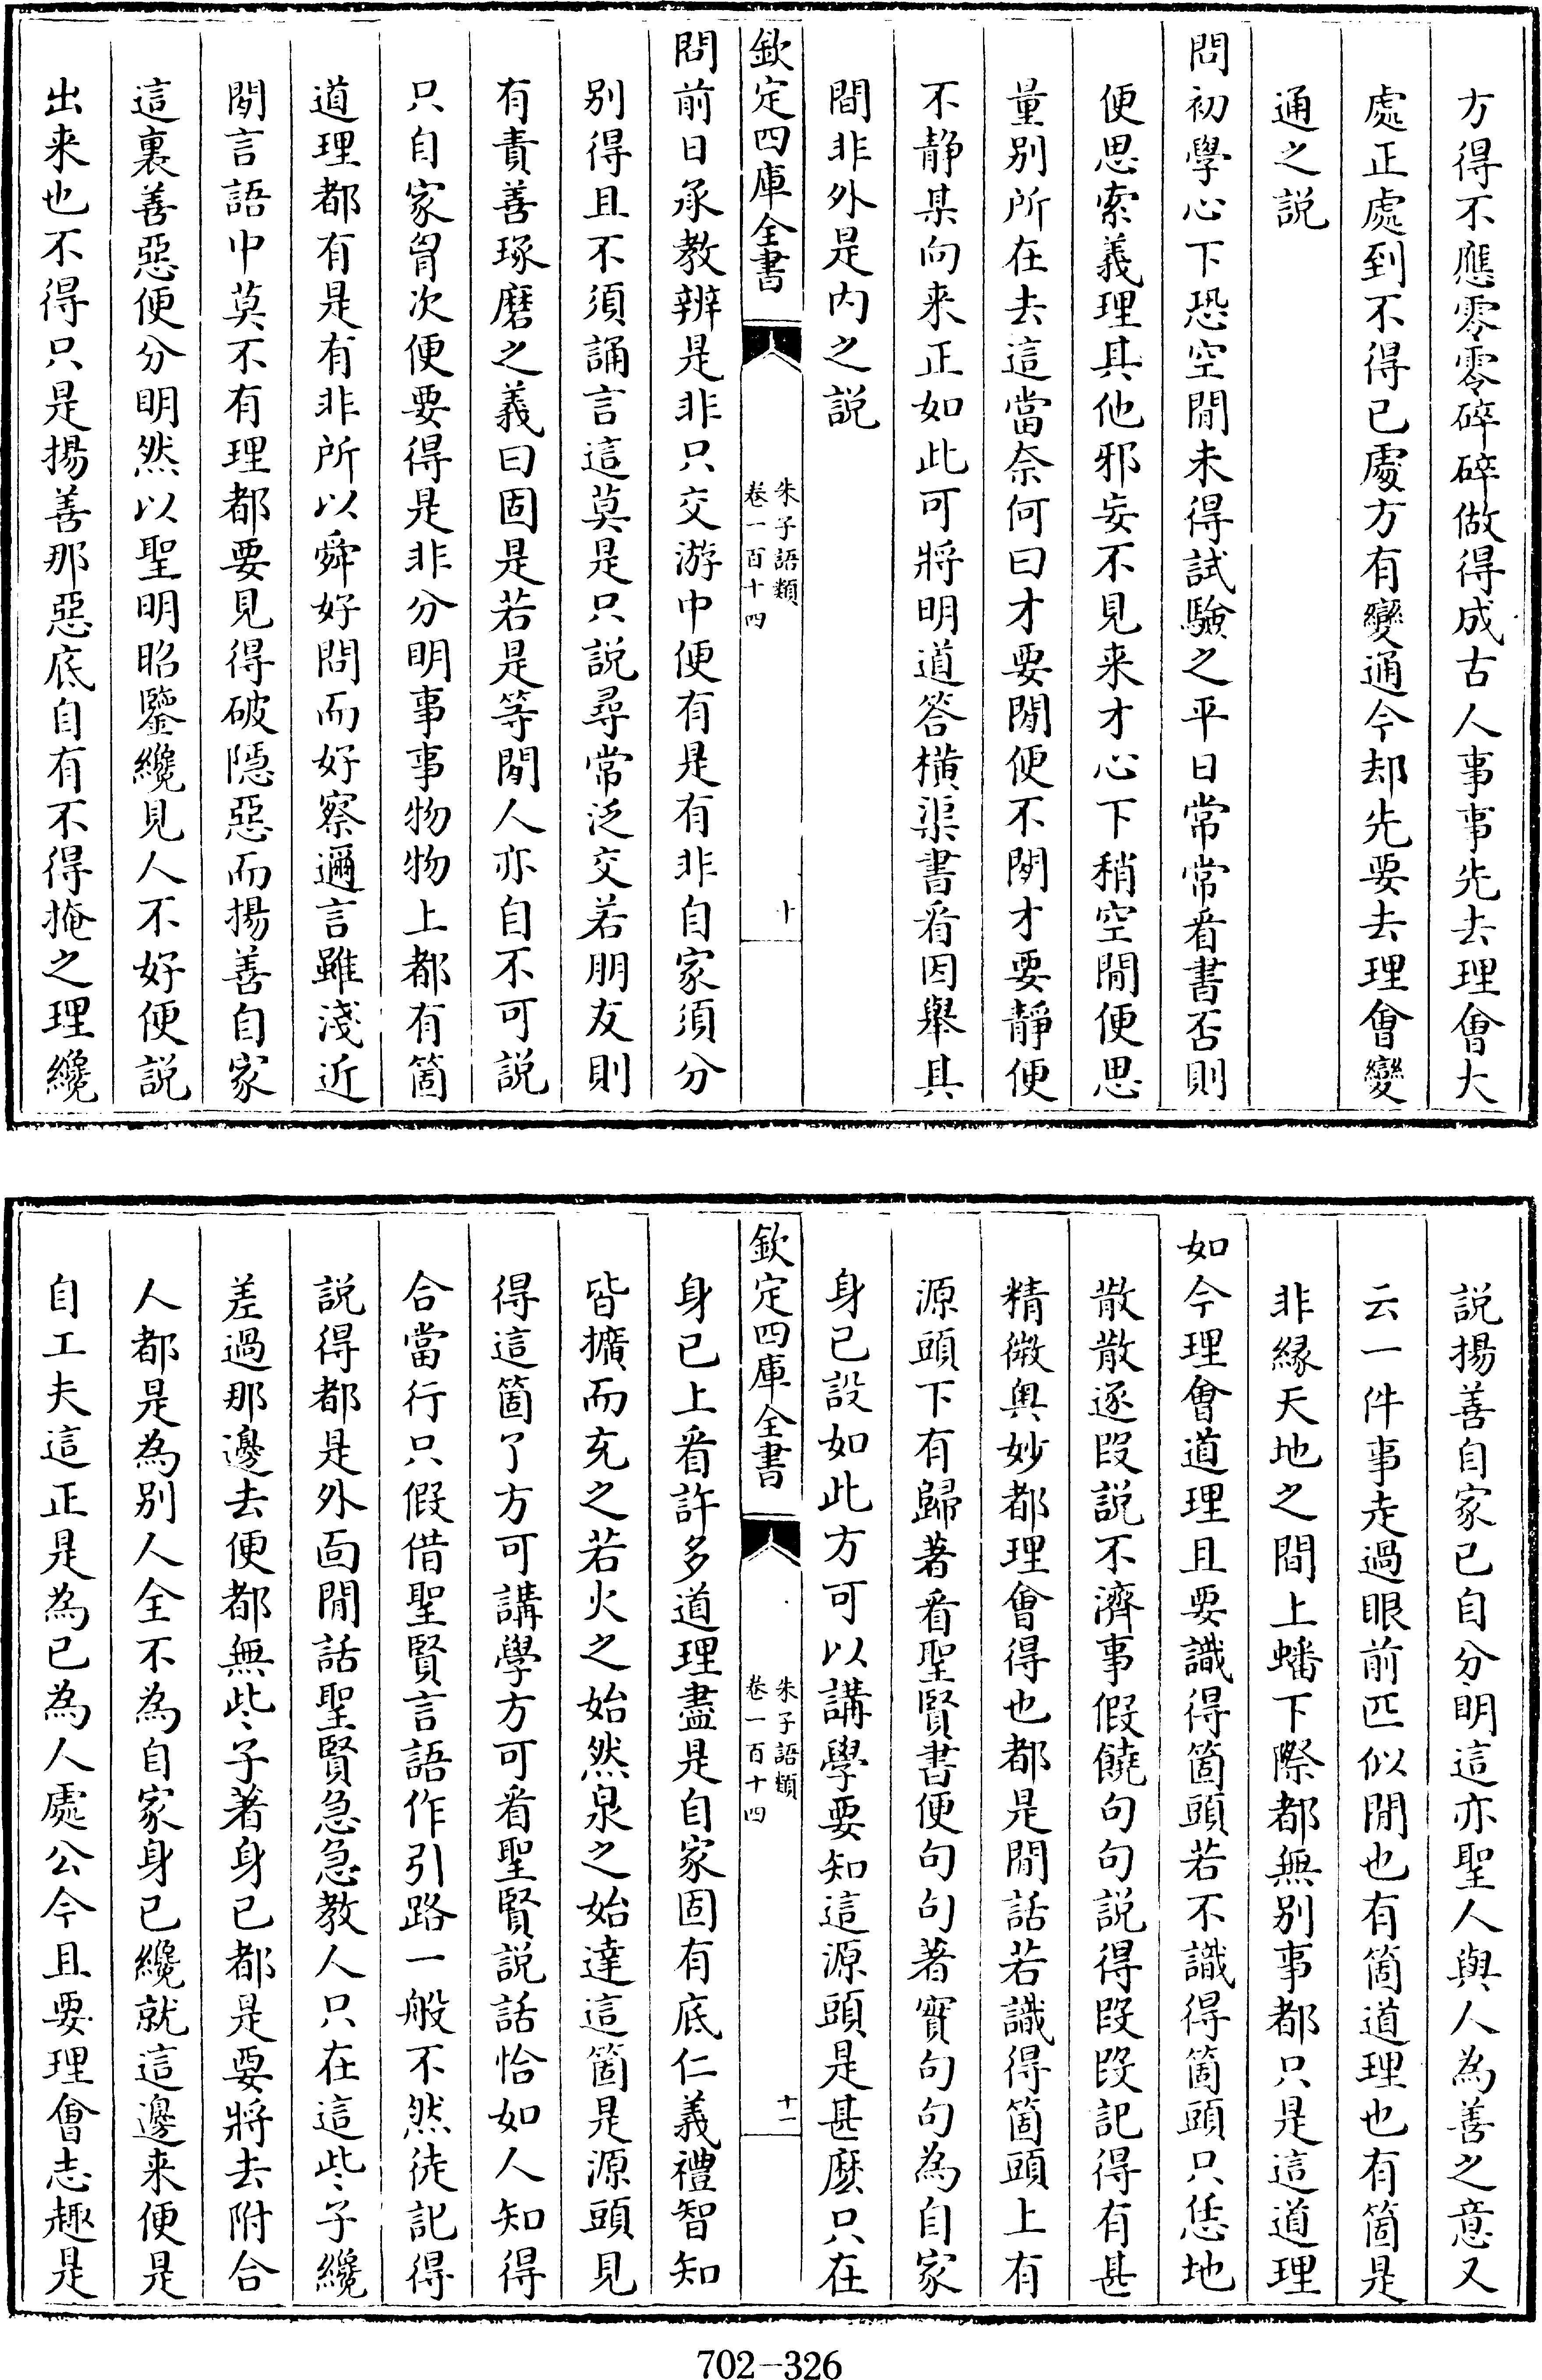 方得不應零零碎碎做得成古人事事先去理會大
處正處到不得已處方有變通今却先要去理會變
通之説
問初學心下恐空閒未得試驗之平日常常看書否則
便思索義理其他邪妄不見来才心下稍空閒便思
量别所在去這當奈何曰才要閒便不閒才要靜便
不静某向来正如此可將明道答横渠書看因舉其
間非外是内之説
欽定四庫全書
朱子語類
卷一百十四
十
問前日承教辨是非只交游中便有是有非自家須分
别得且不須誦言這莫是只説尋常泛交若朋友則
有責善琢磨之義曰固是若是等閒人亦自不可説
只自家胷次便要得是非分明事事物物上都有箇
道理都有是有非所以舜好問而好察邇言雖淺近
閒言語中莫不有理都要見得破隠惡而揚善自家
這裏善惡便分明然以聖明昭鑒纔見人不好便説
出来也不得只是揚善那惡底自有不得掩之理纔
説揚善自家已自分明這亦聖人與人為善之意又
云一件事走過眼前匹似閒也有箇道理也有箇是
非縁天地之間上蟠下際都無别事都只是這道理
如今理會道理且要識得箇頭若不識得箇頭只恁地
散散逐段説不濟事假饒句句説得段段記得有甚
精微奥妙都理會得也都是閒話若識得箇頭上有
源頭下有歸著看聖賢書便句句著實句句為自家
身已設如此方可以講學要知這源頭是甚麽只在
欽定四庫全書
朱子語類
卷一百十四
十一
身已上看許多道理盡是自家固有底仁義禮智知
皆擴而充之若火之始然泉之始達這箇是源頭見
得這箇了方可講學方可看聖賢説話恰如人知得
合當行只假借聖賢言語作引路一般不然徒記得
説得都是外面閒話聖賢急急教人只在這些子纔
差過那邊去便都無些子著身已都是要將去附合
人都是為别人全不為自家身已纔就這邊来便是
自工夫這正是為已為人處公今且要理會志趣是
702-326